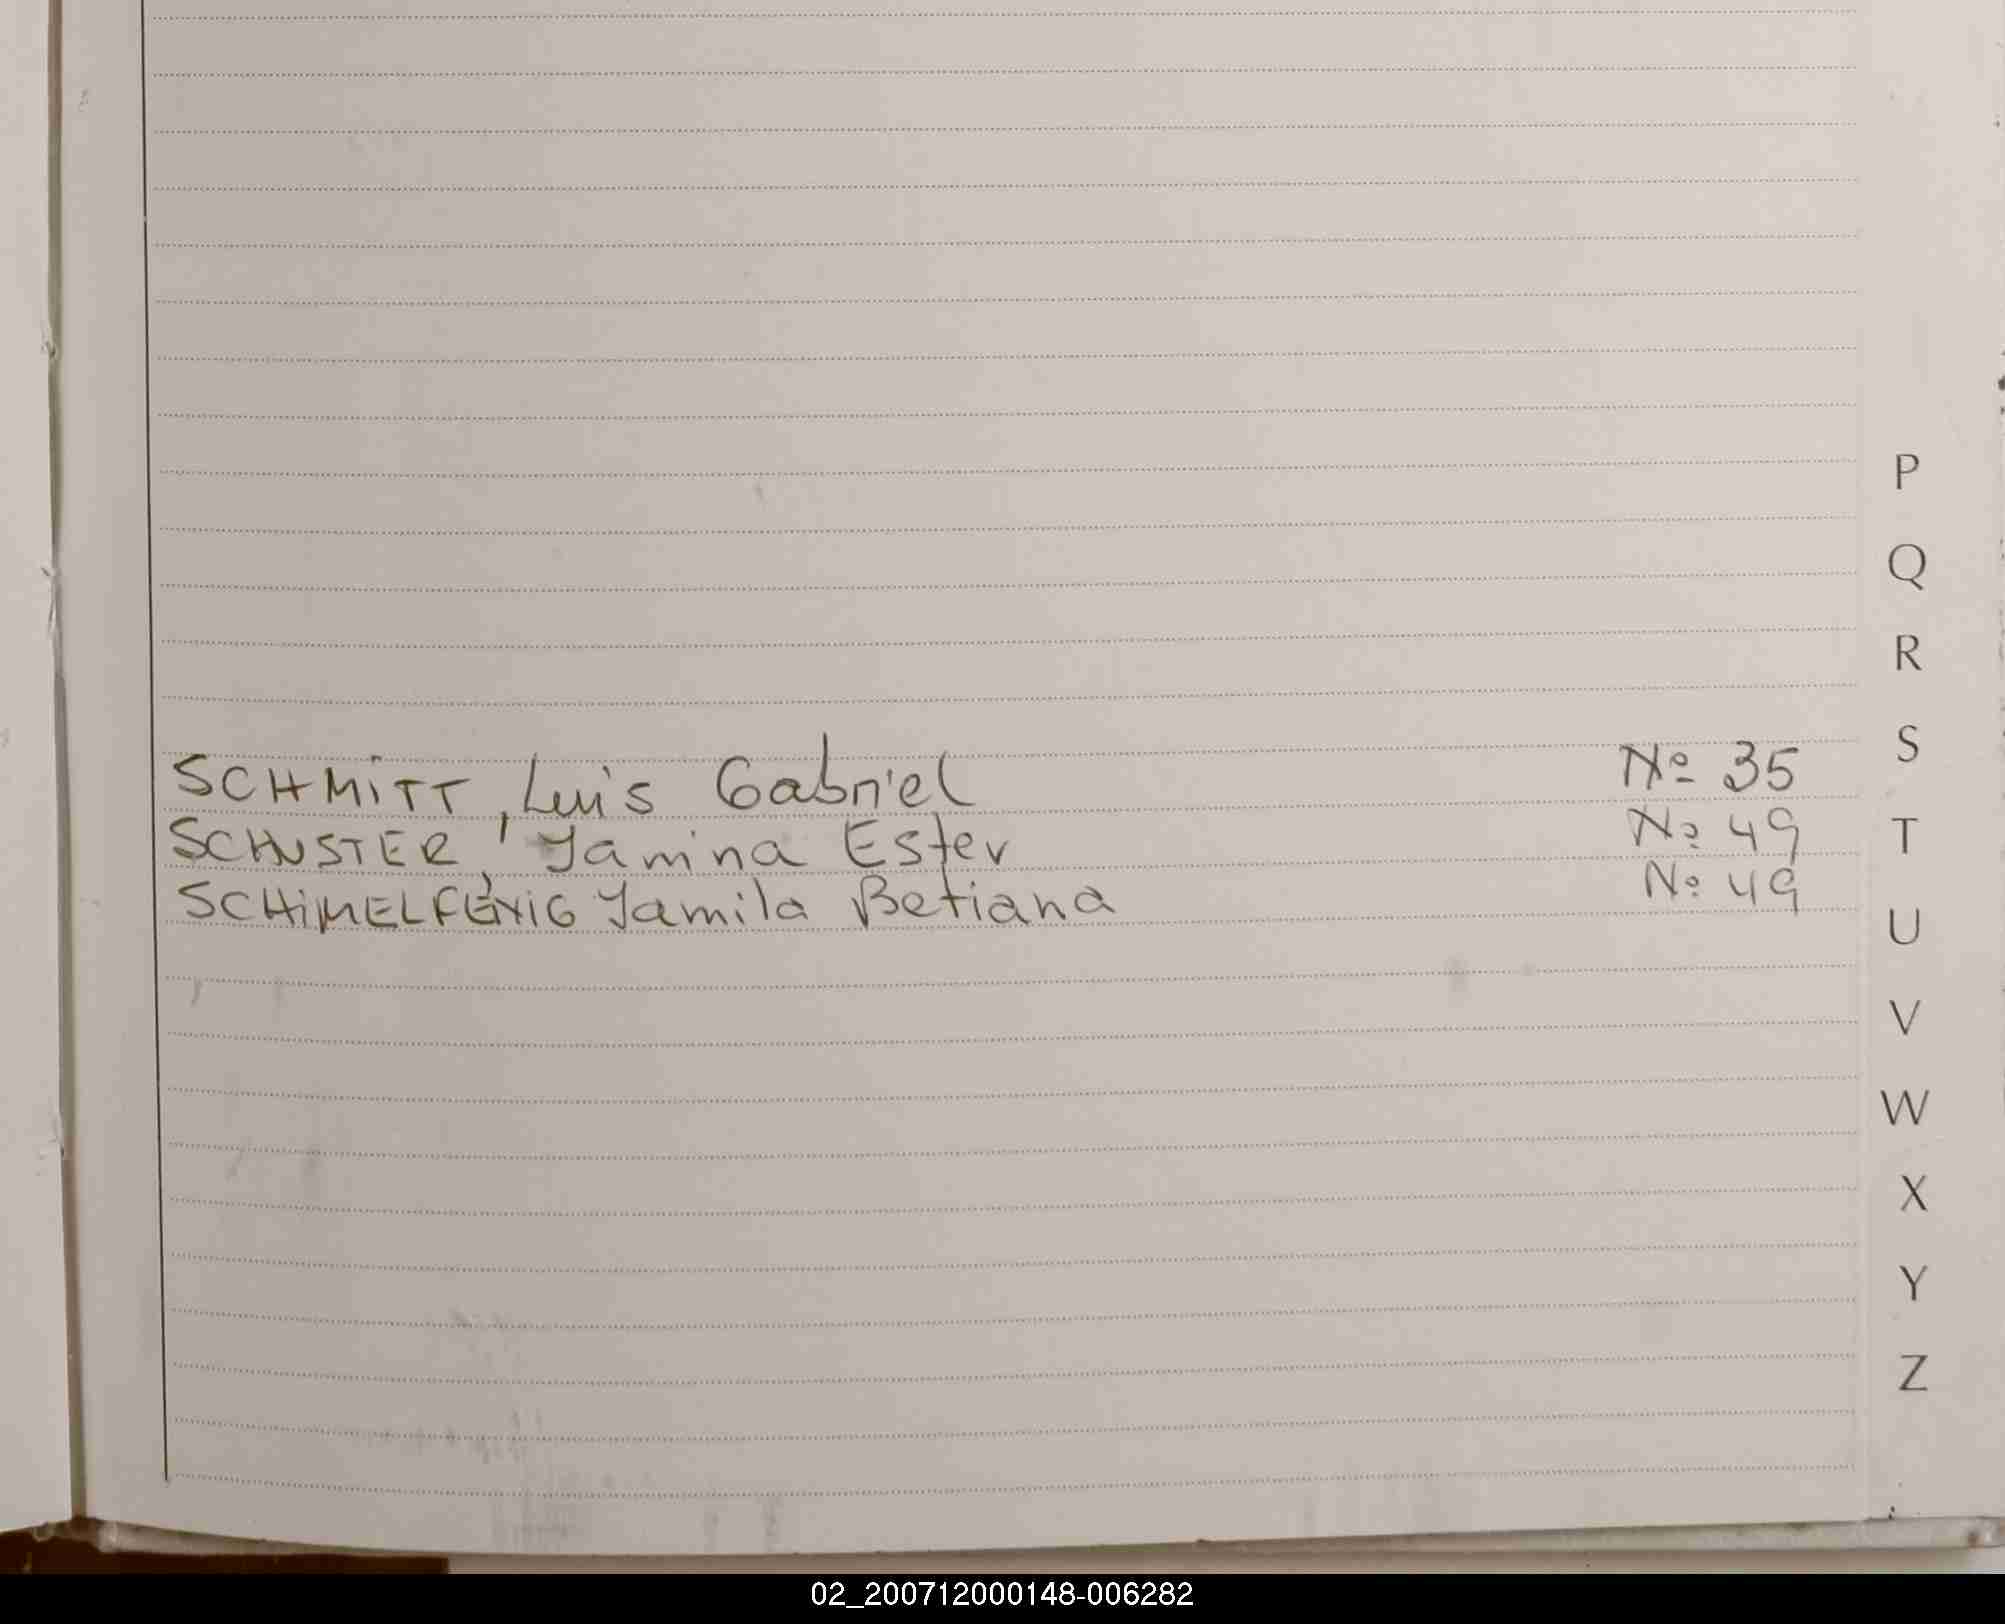 SCHMITT, Luis Gabriel Nº 35
SCHUSTER, Yamina Ester Nº 49
SCHIMELFENIG, Yamila Betiana Nº 49
P
Q
R
S
T
U
V
W
X
Y
Z
02_200712000148-006282